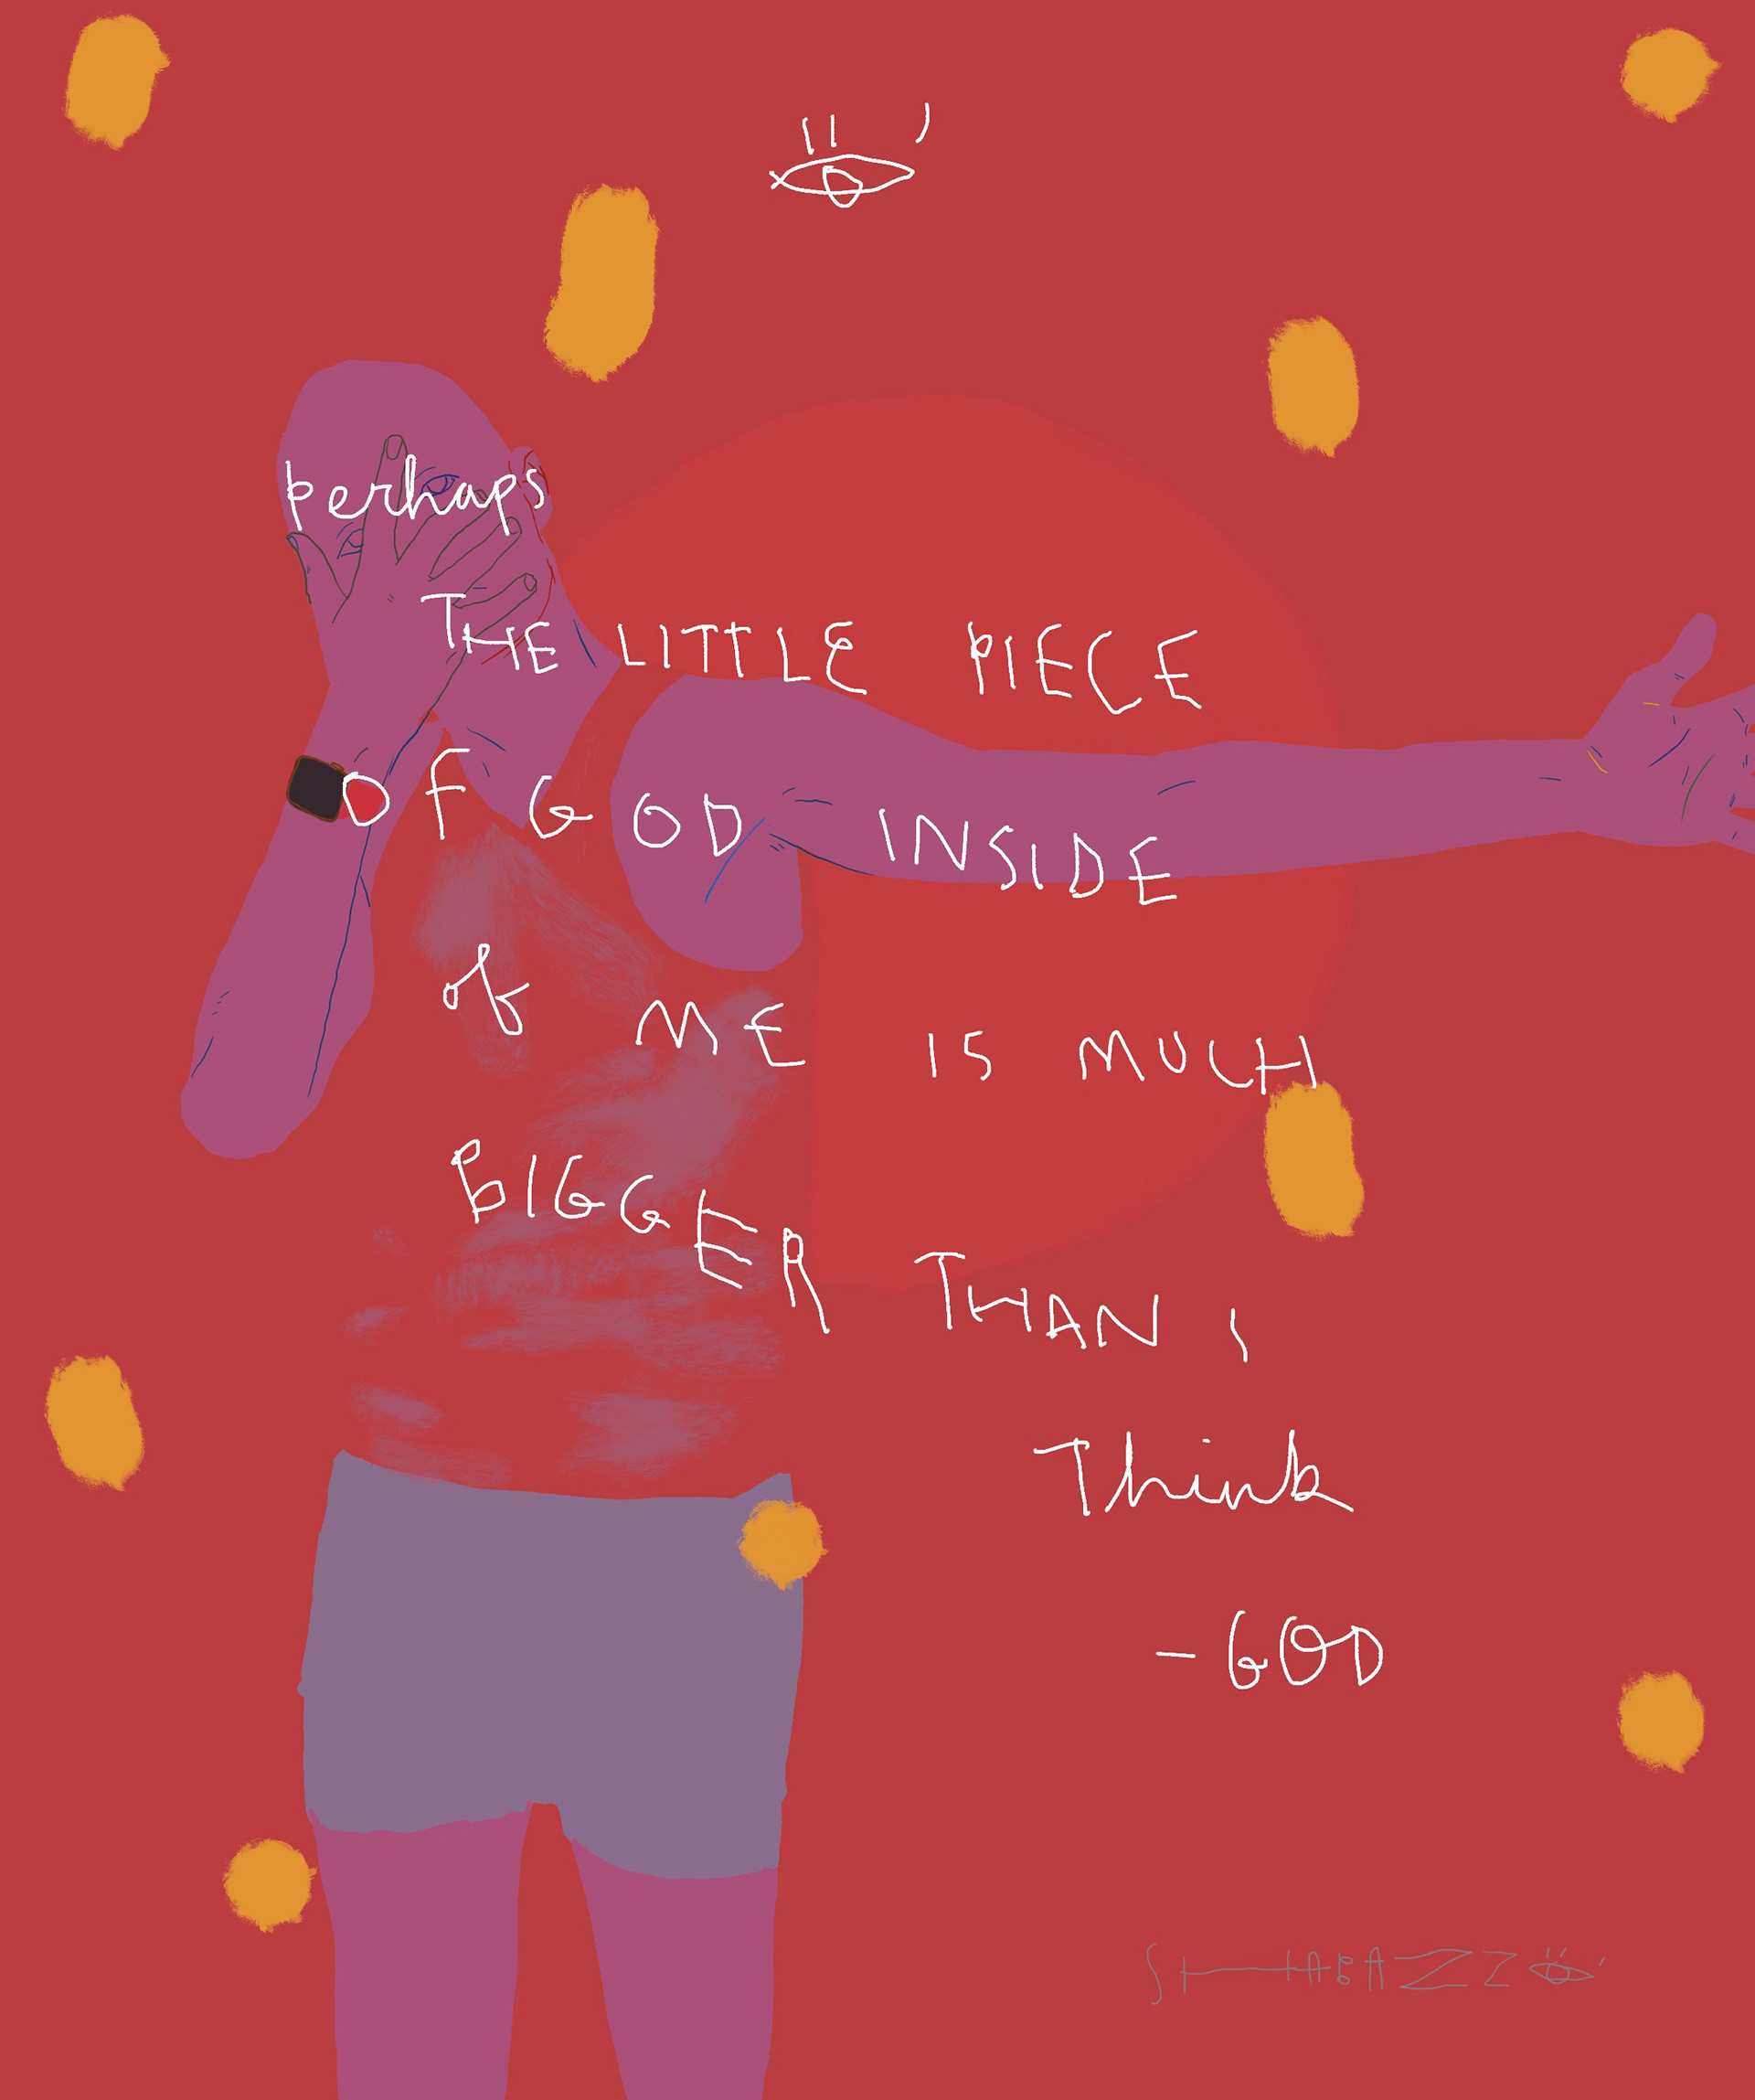 perhaps
THE LITTLE PIECE
OF GOD INSIDE
of ME IS MUCH
BIGGER THAN I
Think
- GOD
SHABAZZ